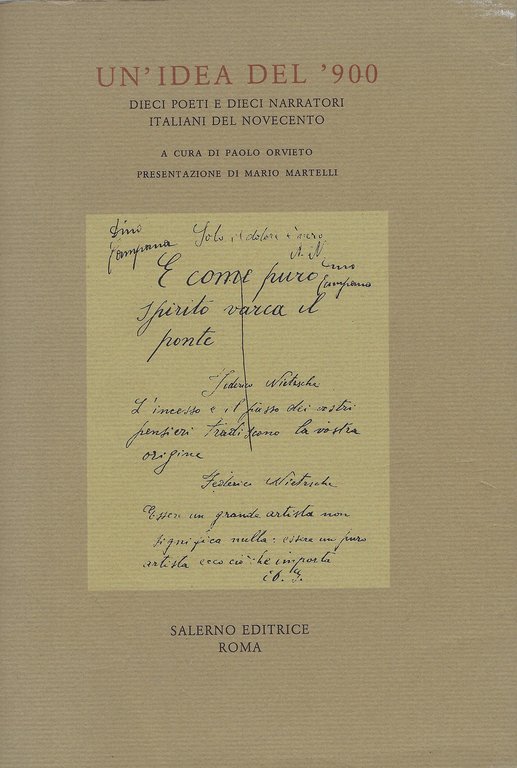 UN'IDEA DEL '900
DIECI POETI E DIECI NARRATORI
ITALIANI DEL NOVECENTO
A CURA DI PAOLO ORVIETO
PRESENTAZIONE DI MARIO MARTELLI
Dino
Campana
Solo il dolore è vero
A. N.
Dino
Campana
E come puro
spirito varca il
ponte
Federico Nietzsche
L'incesso e il passo dei vostri
pensieri tradiscono la vostra
origine
Federico Nietzsche
Essere un grande artista non
significa nulla: essere un puro
artista ecco ciò che importa
SALERNO EDITRICE
ROMA